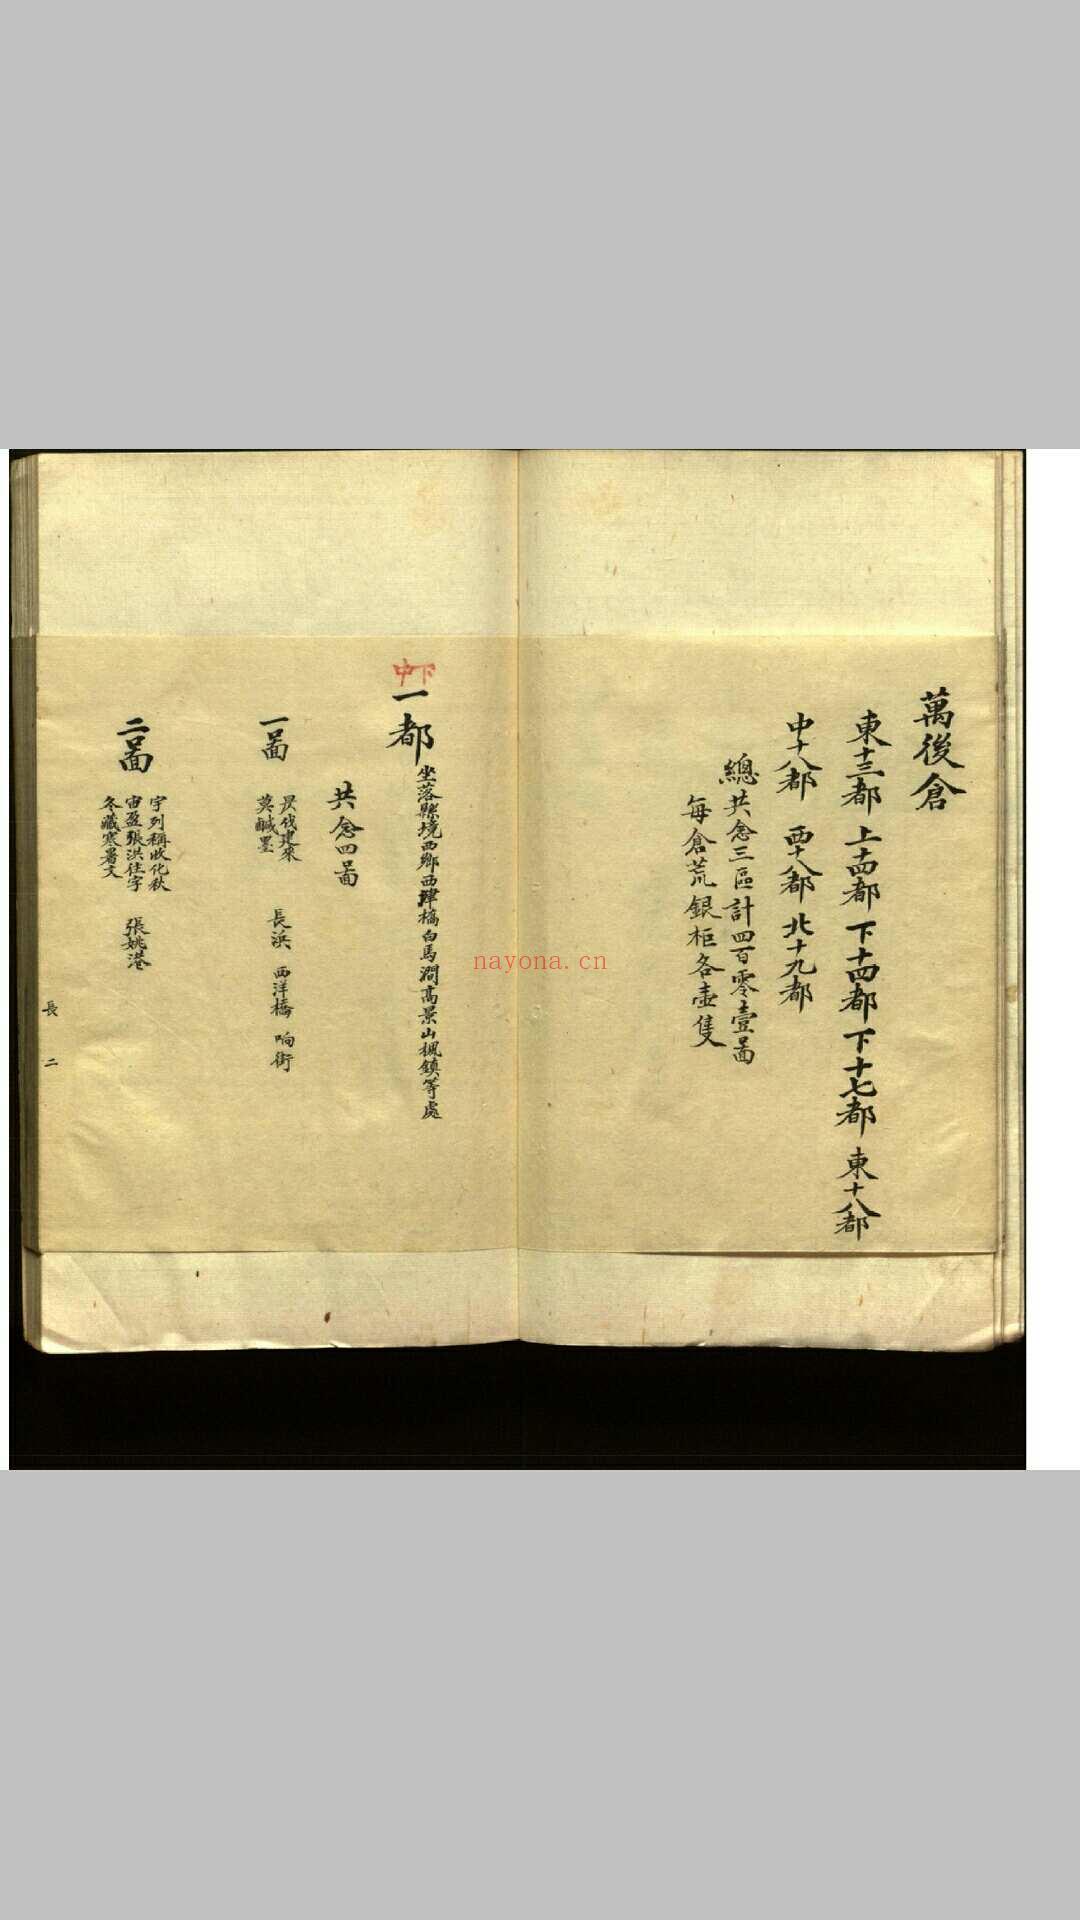 萬後倉
東十三都 上十四都 下十四都 下十七都 東十八都
中十八都 西十八都 北十九都
總共念三區計四百零壹啚
每倉荒銀柜各壺隻
中下
一都 坐落縣境西鄉西津橋白馬澗高景山楓鎮等處
共念四啚
一啚 長浜 西洋橋 响街
二啚
宇列稱收化秋
宙盈張洪往字
冬藏寒暑文
張姚港
長 二
nayona.cn